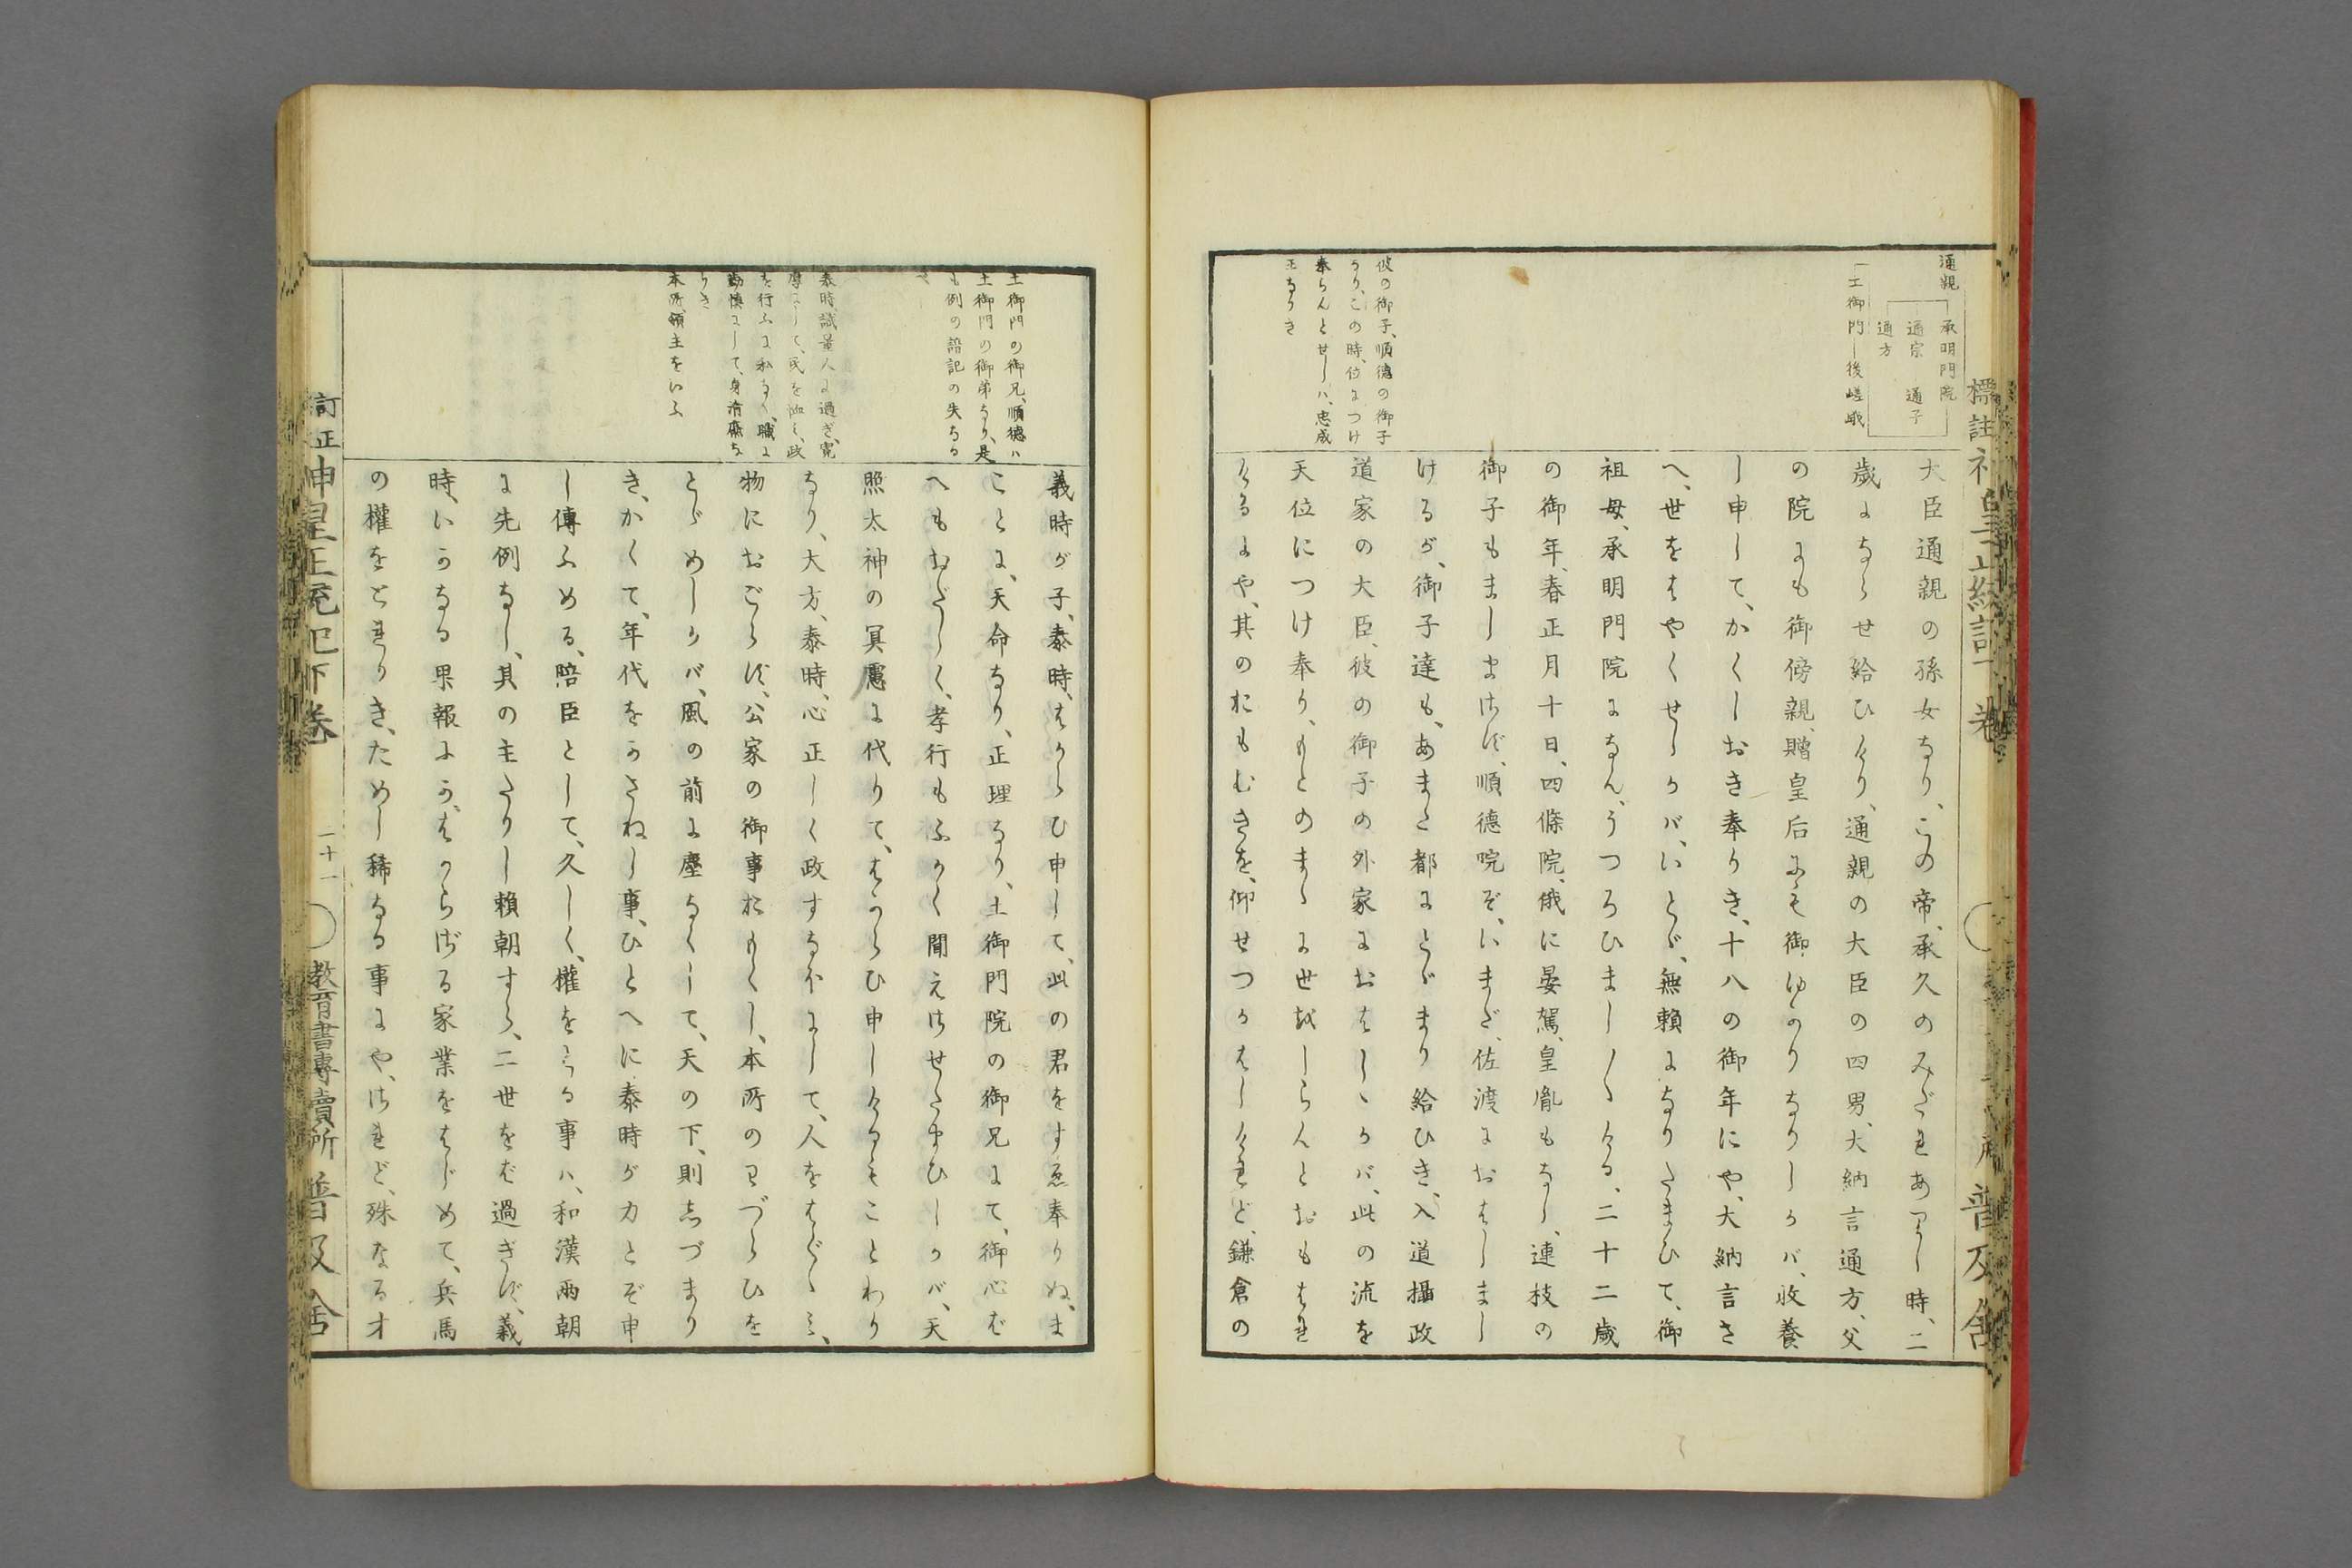 通親
承明門院
通宗
通子
通方
土御門
後嵯峨
彼の御子、順德の御子
なり、この時、位につけ
奉らんとせしハ、忠成
王なりき
大臣通親の孫女なり、この帝、承久のみだれありし時、二
歲にならせ給ひけり、通親の大臣の四男、大納言通方、父
の院にも御傍親、贈皇后にも御ゆかりなりしかバ、收養
し申して、かくしおき奉りき、十八の御年にや、大納言さ
へ、世をはやくせしかバ、いとゞ、無賴になりたまひて、御
祖母、承明門院になん、うつろひまし〳〵ける、二十二歲
の御年、春正月十日、四條院、俄に晏駕、皇胤もなし、連枝の
御子もましまさず、順德院ぞ、いまだ、佐渡におはしまし
けるが、御子達も、あまた都にとゞまり給ひき、入道攝政
道家の大臣、彼の御子の外家におはしゝかバ、此の流を
天位につけ奉り、もとのまゝに世をしらんとおもはれ
けるにや、其のおもむきを、仰せつかはしけれど、鎌倉の
土御門の御兄、順德ハ
土御門の御弟なり、是
も例の諳記の失なる
や
泰時識量人に過ぎ、寬
厚にして、民を恤く、政
を行ふに私なく、職に
勤愼にして、身淸廉な
りき
本所、領主をいふ
義時が子、泰時、はからひ申して、此の君をすゑ奉りぬ、ま
ことに、天命なり、正理なり、土御門院の御兄にて、御心ば
へもおだしく、孝行もふかく聞えさせたまひしかバ、天
照太神の冥慮に代りて、はからひ申しけるもことわり
なり、大方、泰時、心正しく政すなほにして、人をはぐゝみ、
物におごらず、公家の御事おもくし、本所のわづらひを
とゞめしかバ、風の前に塵なくして、天の下、則しづまり
き、かくて、年代をかさねし事、ひとへに泰時が力とぞ申
し傳ふめる、陪臣として、久しく、權をとる事ハ、和漢兩朝
に先例なし、其の主たりし賴朝すら、二世をば過ぎず、義
時、いかなる果報にか、はからざる家業をはじめて、兵馬
の權をとれりき、ためし稀なる事にや、されど、殊なるオ
訂正神皇正統記下卷
二十一
教育書專賣所
普及舍
標註神皇正統記下卷
普及舍